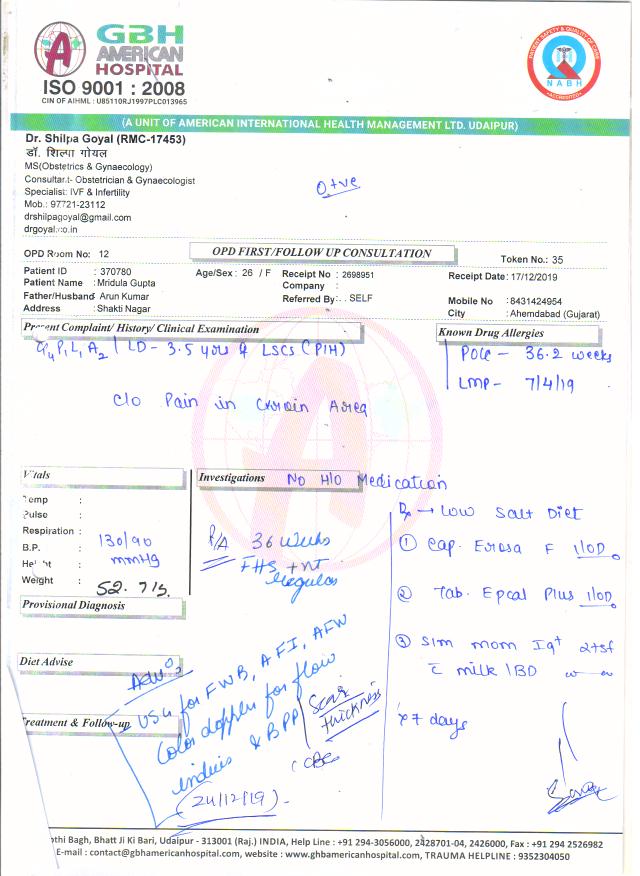 GBH
AMERICAN
HOSPITAL
ISO 9001 : 2008
CIN OF AIHML : U85110RJ1997PLC013965
PATIENT SAFETY & QUALITY OF CARE
NABH
ACCREDITED
(A UNIT OF AMERICAN INTERNATIONAL HEALTH MANAGEMENT LTD. UDAIPUR)
Dr. Shilpa Goyal (RMC-17453)
डॉ. शिल्पा गोयल
MS(Obstetrics & Gynaecology)
Consultant- Obstetrician & Gynaecologist
Specialist: IVF & Infertility
Mob.: 97721-23112
drshilpagoyal@gmail.com
drgoyal.co.in
O+ve
OPD Room No: 12 OPD FIRST/FOLLOW UP CONSULTATION Token No.: 35
Patient ID : 370780 Age/Sex : 26 / F Receipt No : 2698951 Receipt Date: 17/12/2019
Patient Name : Mridula Gupta Company :
Father/Husband Arun Kumar Referred By: . SELF Mobile No : 8431424954
Address : Shakti Nagar City : Ahemdabad (Gujarat)
Present Complaint/ History/ Clinical Examination Known Drug Allergies
G4P1L1A2 / LD - 3.5 yors LSCS (PIH) POG - 36.2 weeks
LMP - 7/4/19
C/O Pain in Groin Area
Vitals Investigations NO H/O Medication
Temp :
Pulse :
Respiration :
B.P. : 130/90 mmHg
Weight : 52.7/5.
P/A 36 weeks
FHS +nt
Regular
Rx → Low Salt Diet
① Cap. Erosa F 1/OD.
② Tab. Epcal Plus 1/OD.
③ Sim mom IQ+ 2tsf
c milk 1BD
x 7 days
Provisional Diagnosis
Diet Advise
Treatment & Follow-up
Adv.
USG for FWB, AFI, AFW
Color doppler for flow
indices & BPP
Scar thickness
CBC
(24/12/19)
othi Bagh, Bhatt Ji Ki Bari, Udaipur - 313001 (Raj.) INDIA, Help Line : +91 294-3056000, 2428701-04, 2426000, Fax : +91 294 2526982
E-mail : contact@gbhamericanhospital.com, website : www.gbhamericanhospital.com, TRAUMA HELPLINE : 9352304050